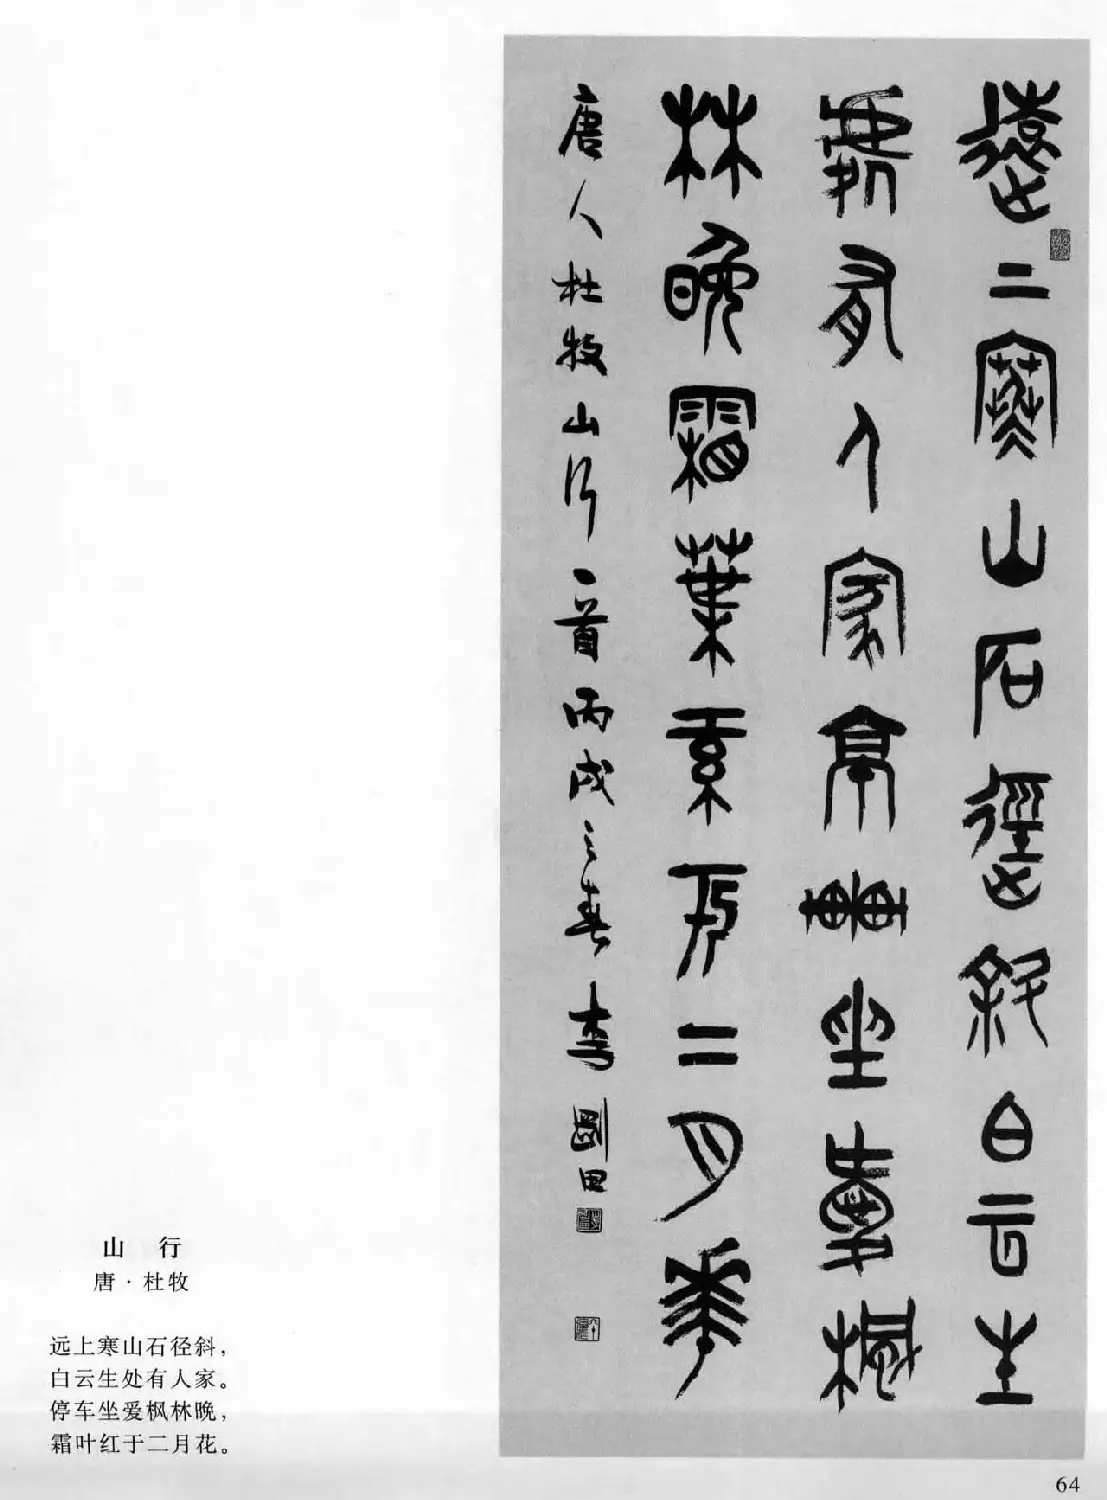 遠上寒山石徑斜白云生
處有人家亭車坐愛楓
林晚霜葉紅于二月花
唐人杜牧山行一首丙戌之春李剛田
山 行
唐·杜牧
远上寒山石径斜，
白云生处有人家。
停车坐爱枫林晚，
霜叶红于二月花。
64